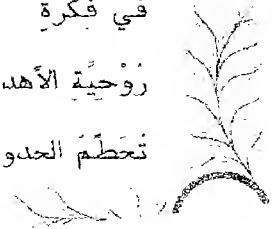 في فكرةٍ
رُوْحِيَّةِ الأهد
تُحَطِّمُ الحدو